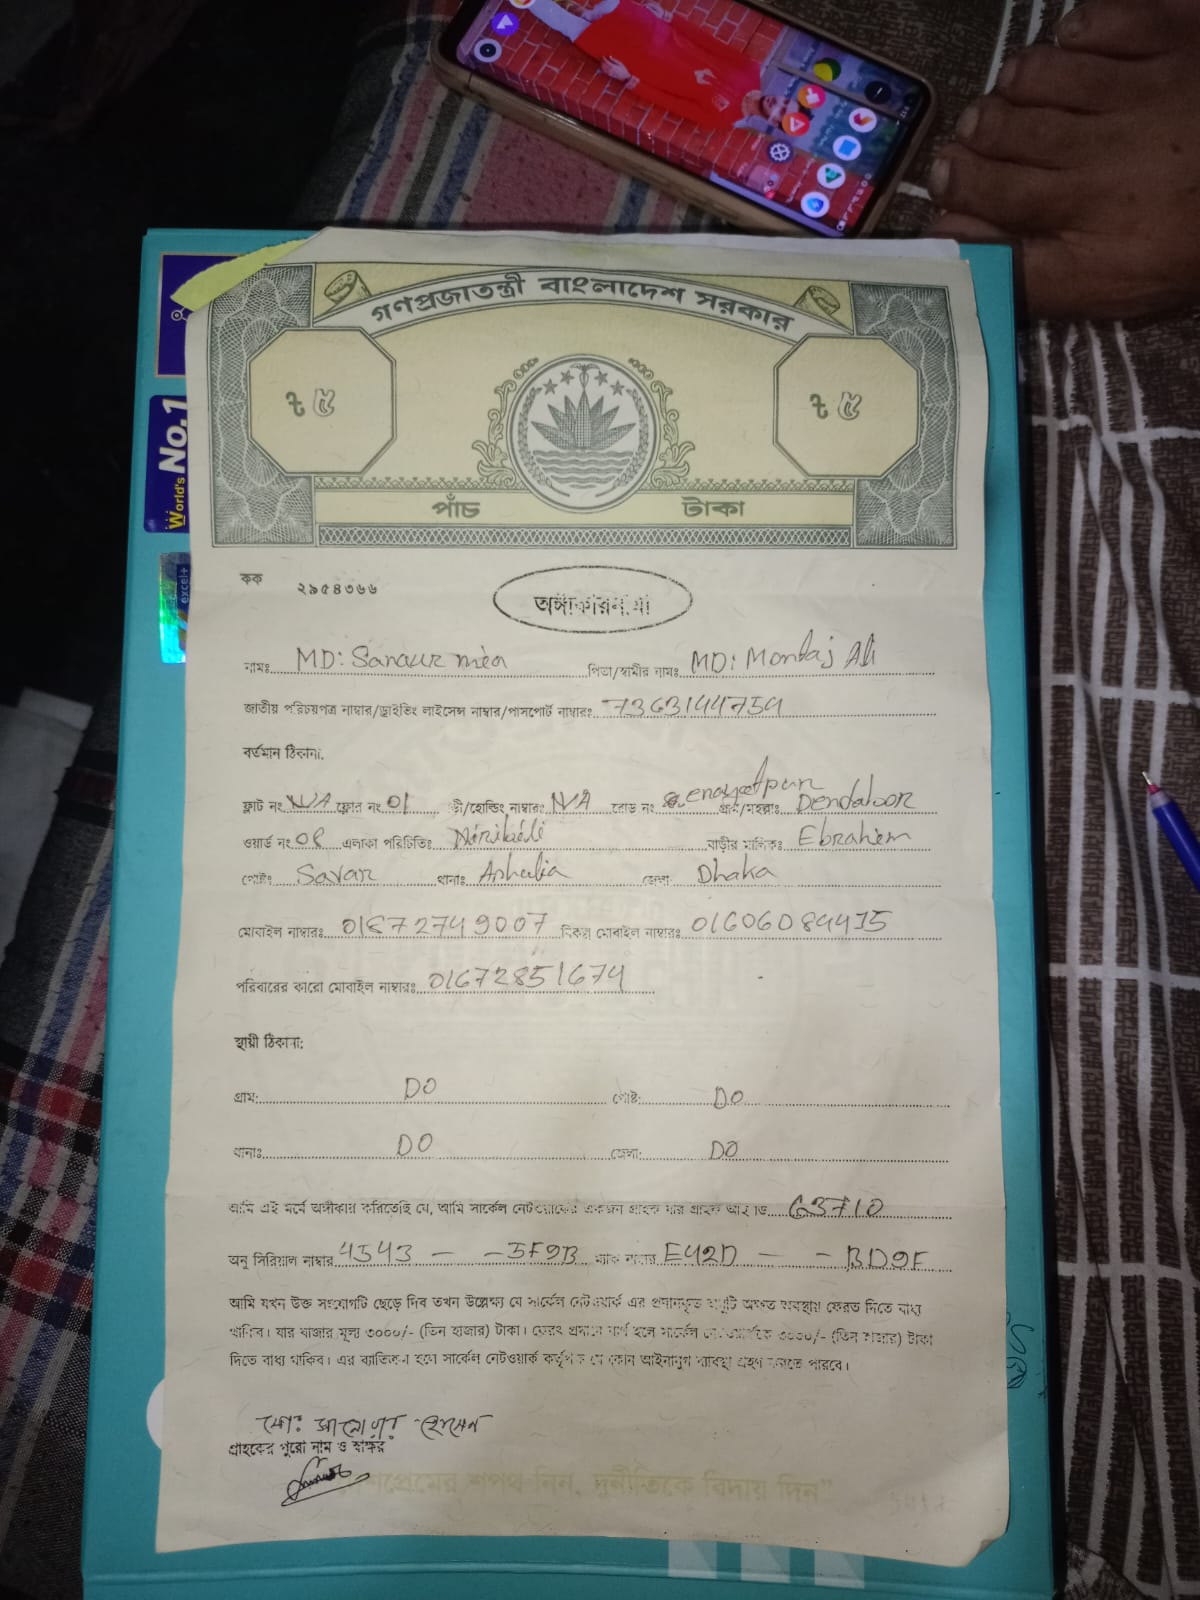 গণপ্রজাতন্ত্রী বাংলাদেশ সরকার
৳ ৫ ৳ ৫
পাঁচ টাকা
World's No.1
excel+
কক ২৯৫৪৩৬৬
অঙ্গীকারনামা
নামঃ MD: Sanaur mia পিতা/স্বামীর নামঃ MD: Montaj Ali
জাতীয় পরিচয়পত্র নাম্বার/ড্রাইভিং লাইসেন্স নাম্বার/পাসপোর্ট নাম্বারঃ 7363144754
বর্তমান ঠিকানা.
ফ্লাট নং N/A ফ্লোর নং 01 বাড়ী/হোল্ডিং নাম্বারঃ N/A রোড নং enayetpur গ্রাম/মহল্লাঃ Dendabor
ওয়ার্ড নং 08 এলাকা পরিচিতিঃ Niribili বাড়ীর মালিকঃ Ebrahiem
পোষ্টঃ Savar থানাঃ Ashulia জেলা Dhaka
মোবাইল নাম্বারঃ 01872749007 বিকল্প মোবাইল নাম্বারঃ 01606084415
পরিবারের কারো মোবাইল নাম্বারঃ 01672851674
স্থায়ী ঠিকানা:
গ্রাম: DO পোষ্ট: DO
থানাঃ DO জেলা: DO
আমি এই মর্মে অঙ্গীকার করিতেছি যে, আমি সার্কেল নেটওয়ার্কের একজন গ্রাহক যার গ্রাহক আইডি 63710
অনু সিরিয়াল নাম্বার 4543 - - 5F9B ম্যাক নাম্বার E42D - - BD9F
আমি যখন উক্ত সংযোগটি ছেড়ে দিব তখন উল্লেক্ষ্য যে সার্কেল নেটওয়ার্ক এর প্রদানকৃত অনুটি অক্ষত অবস্থায় ফেরত দিতে বাধ্য
থাকিব। যার বাজার মূল্য ৩০০০/- (তিন হাজার) টাকা। ফেরৎ প্রদানে ব্যর্থ হলে সার্কেল নেটওয়ার্ককে ৩০০০/- (তিন হাজার) টাকা
দিতে বাধ্য থাকিব। এর ব্যতিক্রম হলে সার্কেল নেটওয়ার্ক কর্তৃপক্ষ যে কোন আইনানুগ ব্যবস্থা গ্রহণ করতে পারবে।
মোঃ সানোয়ার হোসেন
গ্রাহকের পুরো নাম ও স্বাক্ষর
দেশপ্রেমের শপথ নিন, দুর্নীতিকে বিদায় দিন"